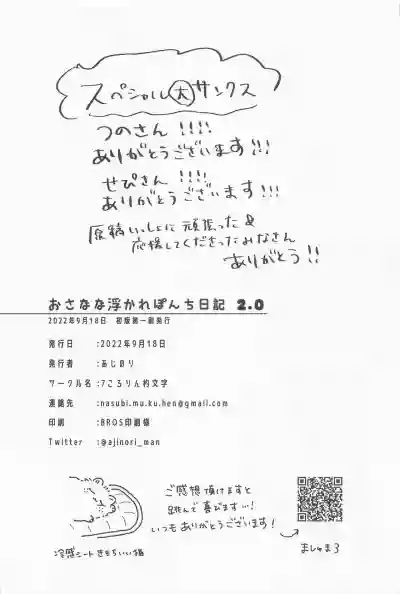 スペシャル大サンクス
つのさん!!!!
ありがとうございます!!!
せぴさん!!!!
ありがとうございます!!!
原稿いっしょに頑張った&
応援してくださったみなさん
ありがとう!!
おさなな浮かれぽんち日記 2.0
2022年9月18日 初版第一刷発行
発行日 :2022年9月18日
発行者 :あじのり
サークル名 :7ころりん的文字
連絡先 :nasubi.mu.ku.hen@gmail.com
印刷 :BROS印刷様
Twitter :@ajinori_man
ご感想頂けますと
跳んで喜びます…!
いつもありがとうございます!
ましゅまろ
冷感シートきもちいい猫